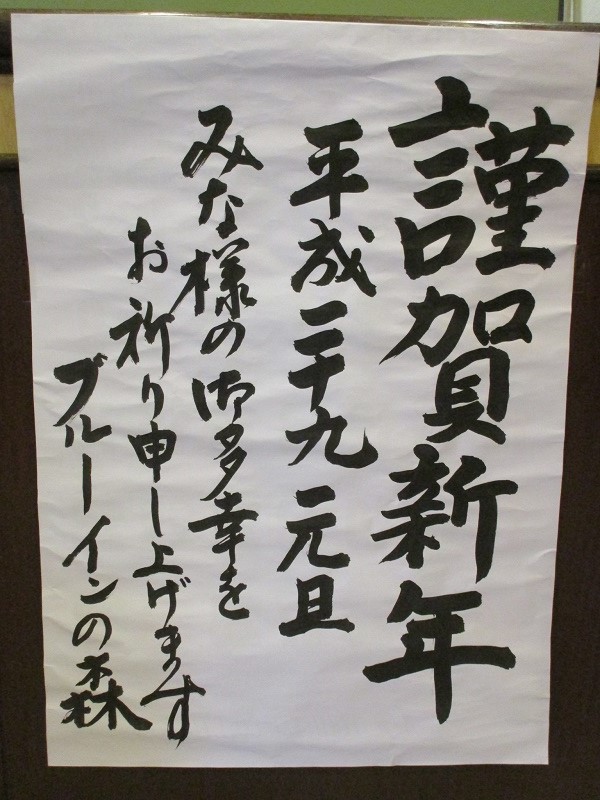 謹賀新年
平成二十九 元旦
みな様の御多幸を
お祈り申し上げます
ブルーインの森